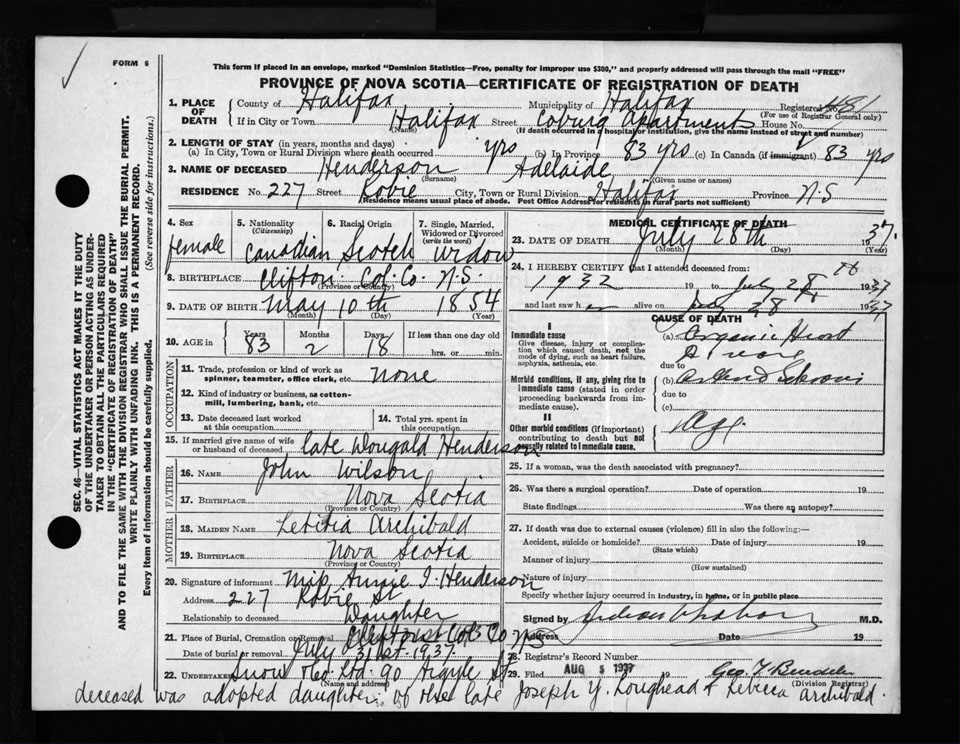 FORM 6
This form if placed in an envelope, marked "Dominion Statistics—Free, penalty for improper use $300," and properly addressed will pass through the mail "FREE"
PROVINCE OF NOVA SCOTIA—CERTIFICATE OF REGISTRATION OF DEATH
1. PLACE OF DEATH County of Halifax Municipality of Halifax Registered No. 481
(For use of Registrar General only)
If in City or Town Halifax Street Coburg Apartments House No.
(Name) (If death occurred in a hospital or institution, give the name instead of street and number)
2. LENGTH OF STAY (in years, months and days)
(a) In City, Town or Rural Division where death occurred yrs (b) In Province 83 yrs (c) In Canada (if immigrant) 83 yrs
3. NAME OF DECEASED Henderson Adelaide
(Surname) (Given name or names)
RESIDENCE No. 227 Street Robie City, Town or Rural Division Halifax Province N.S
(Residence means usual place of abode. Post Office Address for residents in rural parts not sufficient)
4. Sex female
5. Nationality (Citizenship) Canadian
6. Racial Origin Scotch
7. Single, Married, Widowed or Divorced (write the word) Widow
8. BIRTHPLACE Clifton Col. Co. N.S.
(Province or Country)
9. DATE OF BIRTH May 10th 1854
(Month) (Day) (Year)
10. AGE Years 83 Months 2 Days 18 If less than one day old hrs. or min.
OCCUPATION
11. Trade, profession or kind of work as spinner, teamster, office clerk, etc. None
12. Kind of industry or business, as cotton-mill, lumbering, bank, etc.
13. Date deceased last worked at this occupation
14. Total yrs. spent in this occupation
15. If married give name of wife or husband of deceased Late Dougald Henderson
FATHER
16. NAME John Wilson
17. BIRTHPLACE Nova Scotia
(Province or Country)
MOTHER
18. MAIDEN NAME Letitia Archibald
19. BIRTHPLACE Nova Scotia
(Province or Country)
20. Signature of informant Miss Annie I. Henderson
Address 227 Robie St
Relationship to deceased Daughter
21. Place of Burial, Cremation or Removal Col Co NS
Date of burial or removal July 31st 1937
22. UNDERTAKER Snow & Co Ltd. 90 Argyle St
(Name and address)
MEDICAL CERTIFICATE OF DEATH
23. DATE OF DEATH July 28th 1937.
(Month) (Day) (Year)
24. I HEREBY CERTIFY that I attended deceased from:
1932 19 to July 28th 1937
and last saw her alive on July 28 1937
CAUSE OF DEATH
I
Immediate cause
Give disease, injury or complication which caused death, not the mode of dying, such as heart failure, asphyxia, asthenia, etc.
(a) Organic Heart Disease
due to
Morbid conditions, if any, giving rise to immediate cause (stated in order proceeding backwards from immediate cause).
(b)
due to
(c)
II
Other morbid conditions (if important) contributing to death but not causally related to immediate cause.
Age
25. If a woman, was the death associated with pregnancy?
26. Was there a surgical operation? Date of operation 19
State findings Was there an autopsy?
27. If death was due to external causes (violence) fill in also the following:—
Accident, suicide or homicide? Date of injury 19
(State which)
Manner of injury
(How sustained)
Nature of injury
Specify whether injury occurred in industry, in home, or in public place
Signed by M.D.
Address Date 19
28. Registrar's Record Number
29. Filed AUG 5 1937 19 Geo. T.
(Division Registrar)
deceased was adopted daughter of the late Joseph Y. Loughead & Rebecca Archibald.
SEC. 46—VITAL STATISTICS ACT MAKES IT THE DUTY
OF THE UNDERTAKER OR PERSON ACTING AS UNDER-
TAKER TO OBTAIN ALL THE PARTICULARS REQUIRED
IN THE "CERTIFICATE OF REGISTRATION OF DEATH"
AND TO FILE THE SAME WITH THE DIVISION REGISTRAR WHO SHALL ISSUE THE BURIAL PERMIT.
WRITE PLAINLY WITH UNFADING INK. THIS IS A PERMANENT RECORD.
Every item of information should be carefully supplied. (See reverse side for instructions.)